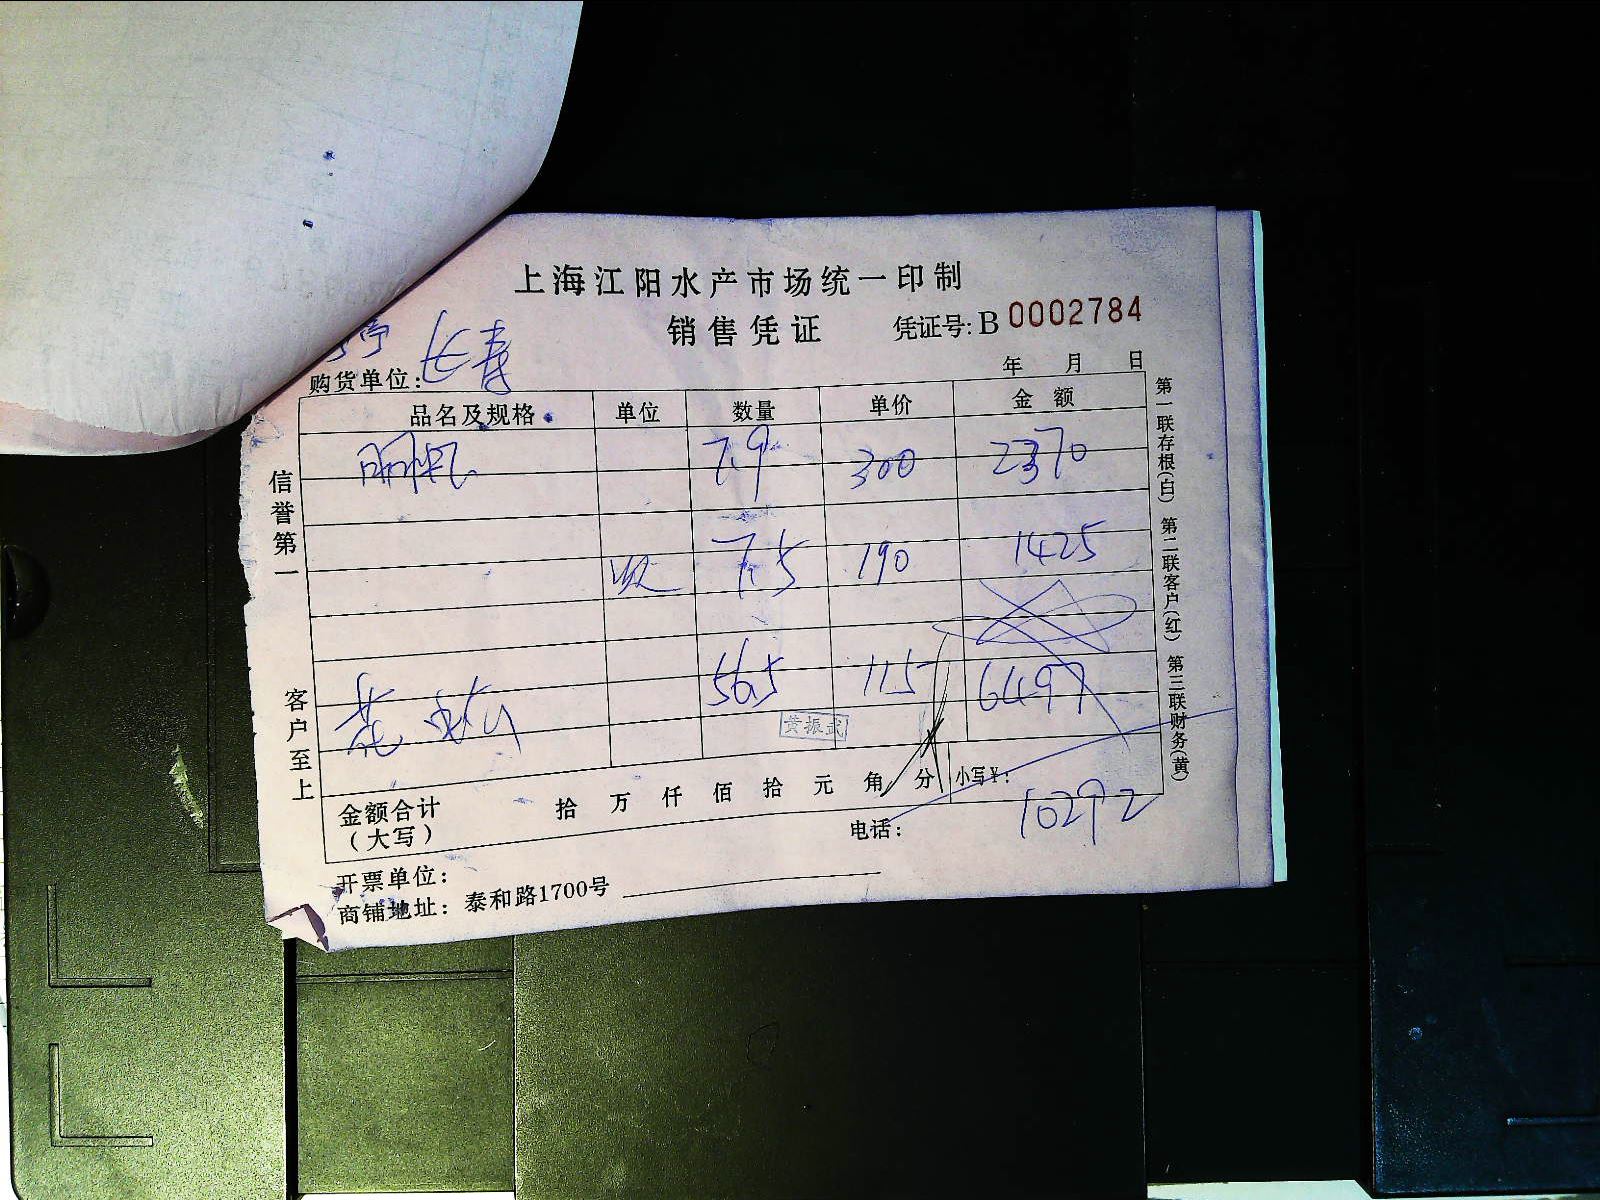 上海江阳水产市场统一印制
销售凭证 凭证号: B 0002784
年 月 日
购货单位: 长青
品名及规格 单位 数量 单价 金额
7.9 300 2370
7.5 190 1425
花 56.5 115 6497
黄振武
金额合计 (大写) 拾 万 仟 佰 拾 元 角 分 小写¥: 10292
电话:
开票单位:
商铺地址: 泰和路1700号
信誉第一
客户至上
第一联存根(白) 第二联客户(红) 第三联财务(黄)